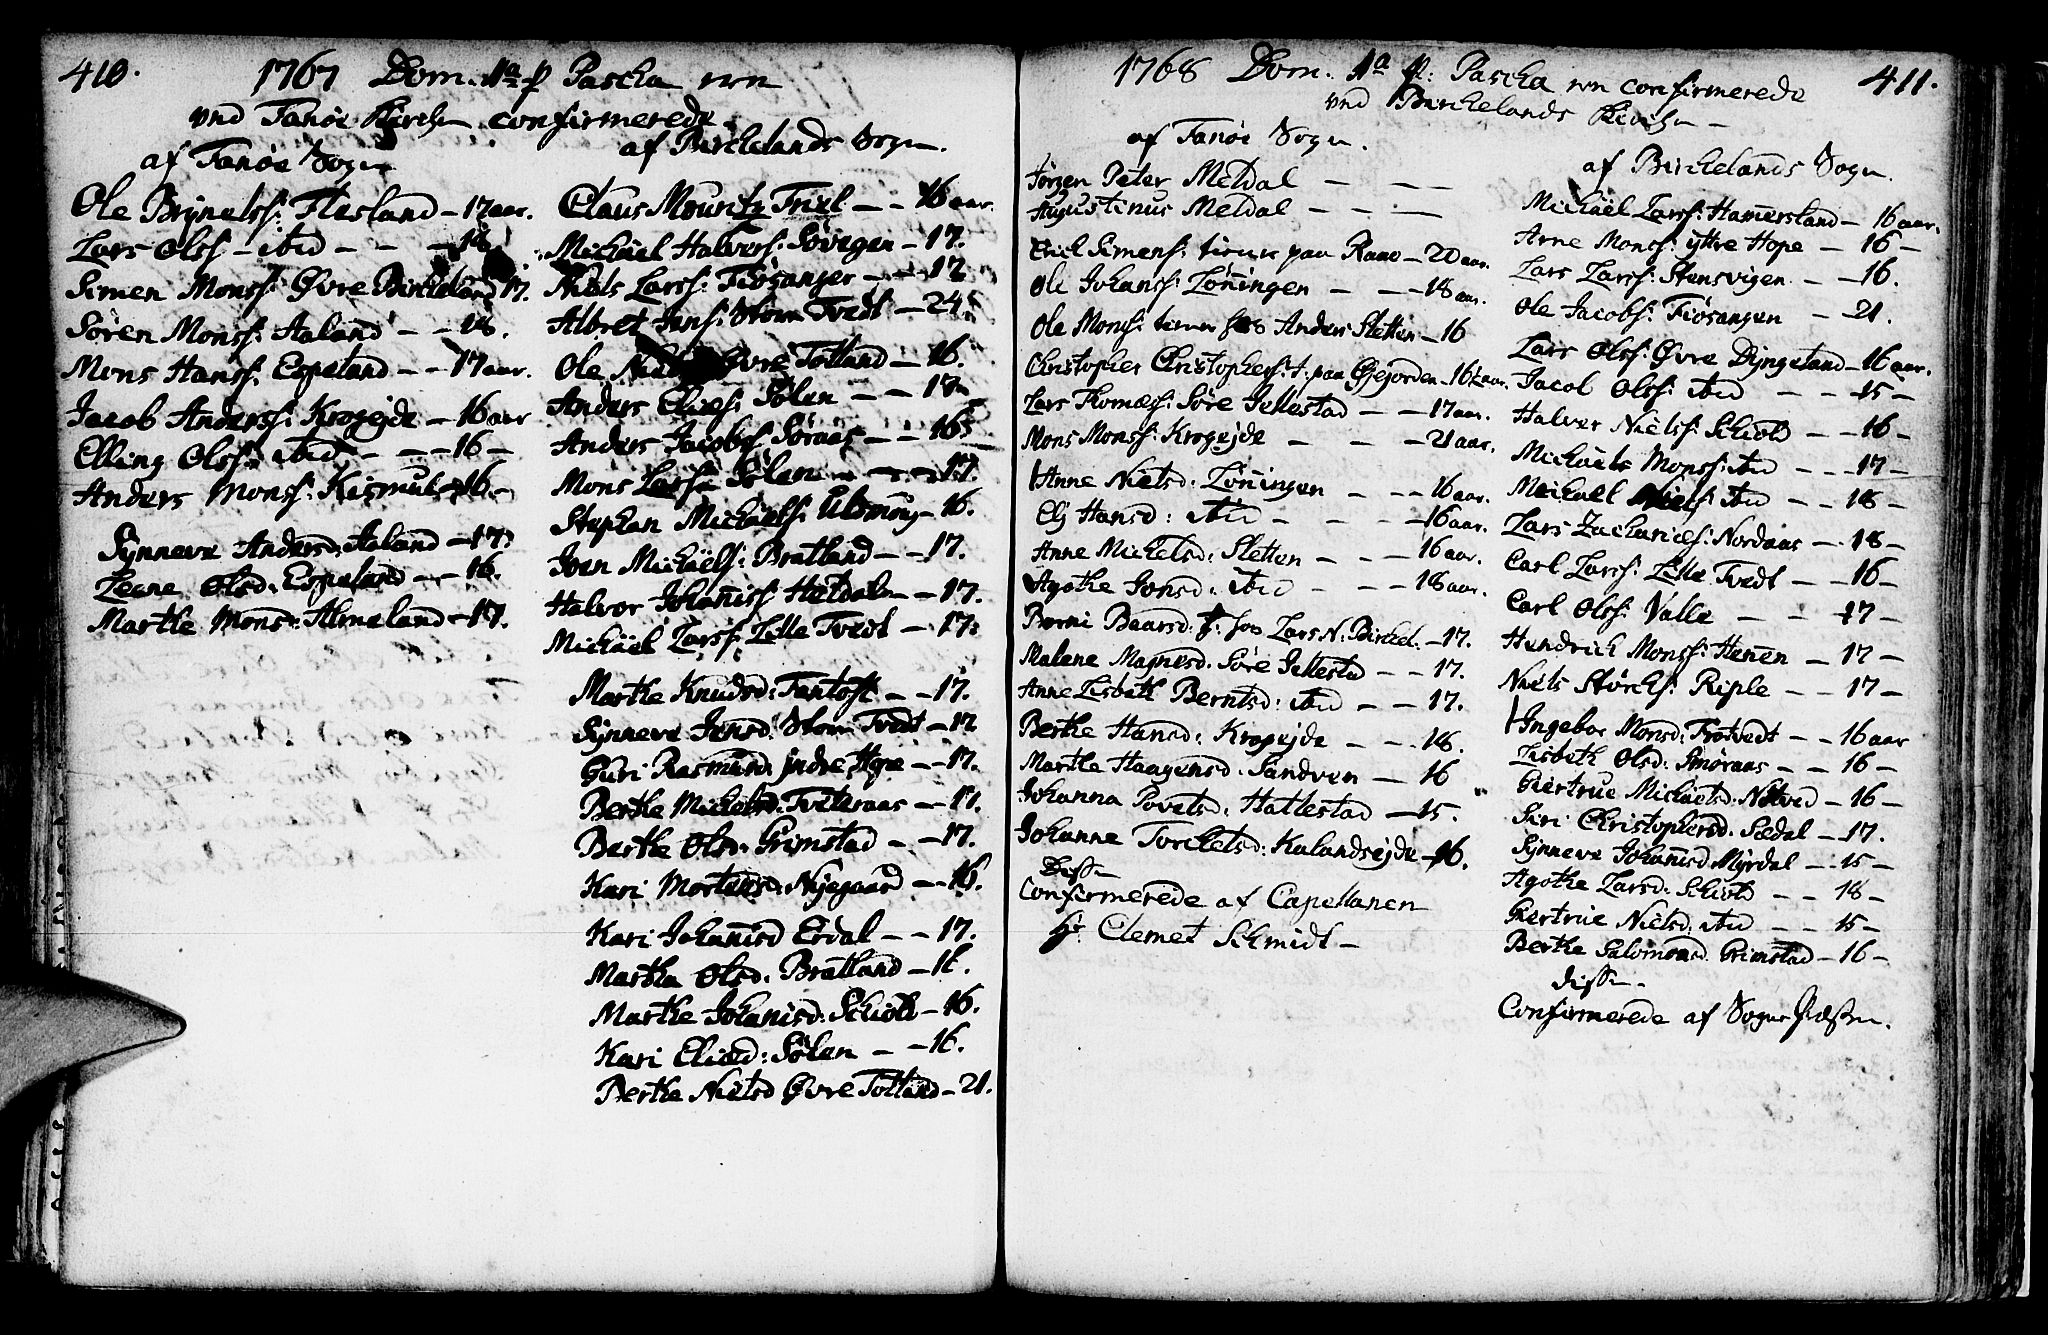 410.
1767 Dom. 1a p Pascha ere
ved Fanøe Kirche confirmerede
af Fanøe Sogn
Ole Brynelss: Flesland - 17 aar.
Lars Olss - ibid - - - 18
Simen Monss: Øvre Birkeland 17.
Sören Monss: Aaland - - 18.
Mons Hanss: Espeland - - 17 aar.
Jacob Anderss: Krogejde - 16 aar
Elling Olss: ibid - - - 16 -
Anders Monss: Kismul - 16. -
Synneve Andersd: Aaland - 17.
Lene Olsd: Espeland - - 16.
Marthe Monsd: Almeland - 17.
af Birchelands Sogn.
Claus Mouritz Friel - - 16 aar.
Michäel Halvorss: Søvigen - 17.
Niels Larss: Fiösanger - - 17
Albret Jenss: Store Tvedt - 24.
Ole Niels Øvre Totland - 16.
Anders Eliess: Sølen - - 17
Anders Jacobss: Søraas - - 16
Mons Larss: Sølen - - - 17.
Stephen Michäelss: Ulsmøug - 16.
Iven Michäelss: Bratland - - 17.
Halvor Johaniss Hetdalen - - 17.
Michäel Larss: Lille Tvedt - 17.
Marthe Knudsd: Fantoft - - 17.
Synneve Jensd: Store Tvedt - 17
Guri Rasmusd: jndre Hope - - 17.
Berthe Michelsd: Tveteraas - 17.
Berthe Olsd: Grimstad - - 17.
Kari Mortensd: Nygaard - - 16.
Kari Johanisd Erdal - - 17.
Martha Olsd: Bratland - 16.
Marthe Johanisd: Schiold - 16.
Kari Eliæd: Sølen - - 16.
Berthe Nielsd Øvre Totland - 21.
1768 Dom. 1a p: Pascha ere confirmerede
ved Birchelands Kirche -
411.
af Fanøe Sogn.
Jørgen Peter Meldal - - -
Augustinus Meldal - - -
Erich Simenss: tiener paa Raae - 20 aar.
Ole Johanss: Lønningen - - - 18 aar.
Ole Monss: tiener hos Anders Sletten - 16
Christopher Christopherss: t. paa Gjejorden - 16 1/2 aar.
Lars Thomæss: Søre Jellestad - - 17 aar.
Mons Monss: Krogejde - - - 21 aar.
Anne Nielsd: Lønningen - - - 16 aar.
Elj Hansd: ibid - - - 16 aar.
Anne Michelsd: Sletten - - - 16 aar.
Agothe Jonsd: ibid - - - 18 aar.
Berni Baarsd: t: hos Lars N: Birchel. - 17.
Malene Magnesd. Søre Jellestad - - 17.
Anne Lisbeth Berntsd: ibid - - 17.
Berthe Hansd: Krogejde - - 18.
Marthe Haagensd: Sandven - 16
Johanna Povelsd: Hatlestad - 15.
Johanne Torchelsd: Kalandsejde - 16.
Disse
Confirmerede af Capellanen
Hr: Clemet Schmidt -
af Birchelands Sogn.
Michäel Larss: Hamersland - 16 aar.
Arne Monss: yttre Hope - 16 -
Lars Larss: Stensvigen - - 16.
Ole Jacobs: Fiösangen - 21.
Lars Olss: Øvre Dyngeland - 16 aar.
Jacob Olss: ibid - - 15 -
Halver Nielss: Schiold - - 16 -
Michäels Monss: ibid - - 17 -
Michael Nielss: ibid - - 18 -
Lars Zachariæs: Nordaas - 18 -
Carl Larss: Lille Tvedt - - 16 -
Carl Olss: Valle - - 17 -
Hendrich Monss: Henen - 17 -
Niels Størchs: Riple - - 17 -
Ingebor Monsd: Trötvedt - - 16 aar
Lisbeth Olsd: Smøraas - - 16 -
Giertrue Michäelsd: Natved - 16 -
Siri Christophersd: Sædal - 17.
Synneve Johanisd: Myrdal - 15 -
Agothe Larsd: Schiold - - 18 -
Giertrue Nielsd: ibid - - 15 -
Berthe Salomonsd: Grimstad - 16 -
disse.
Confirmerede af Sogne Præsten.